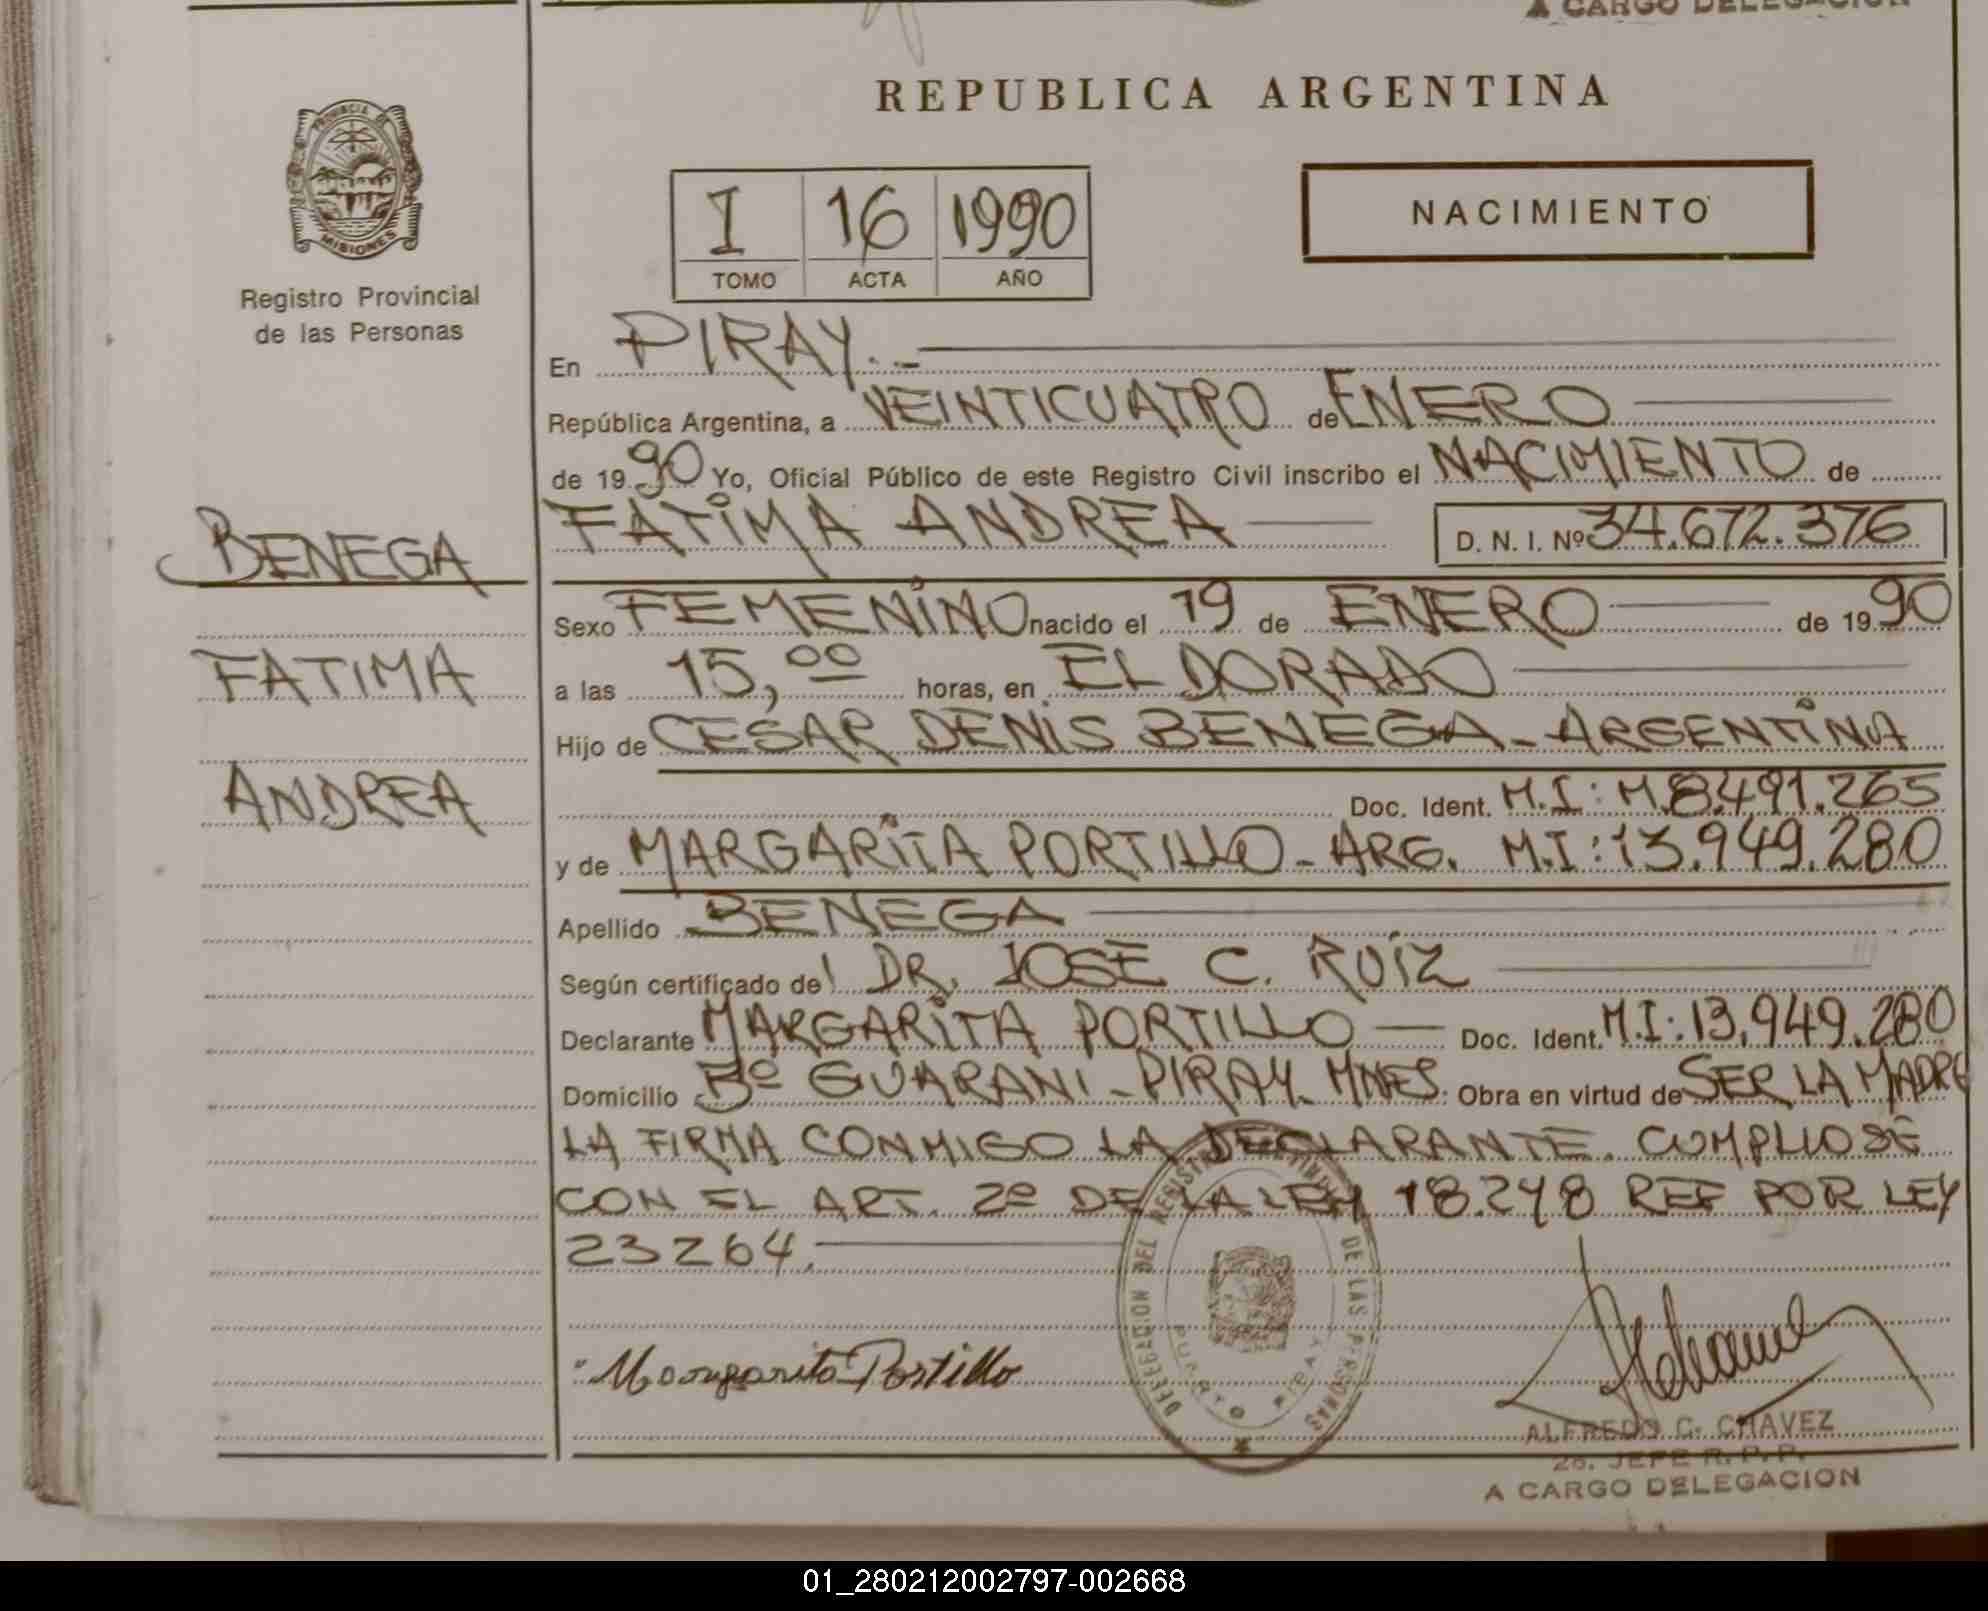 A CARGO DELEGACION
REPUBLICA ARGENTINA
PROVINCIA DE
MISIONES
Registro Provincial
de las Personas
I 16 1990
TOMO ACTA AÑO
NACIMIENTO
En PIRAY.-
República Argentina, a VEINTICUATRO de ENERO
de 1990 Yo, Oficial Público de este Registro Civil inscribo el NACIMIENTO de
FATIMA ANDREA D. N. I. Nº 34.672.376
BENEGA
FATIMA
ANDREA
Sexo FEMENINO nacido el 19 de ENERO de 1990
a las 15,00 horas, en ELDORADO
Hijo de CESAR DENIS BENEGA - ARGENTINA
Doc. Ident. M.I: M.8.491.265
y de MARGARITA PORTILLO - ARG. M.I: 13.949.280
Apellido BENEGA
Según certificado del DR. JOSE C. RUIZ
Declarante MARGARITA PORTILLO — Doc. Ident. M.I: 13.949.280
Domicilio Bº GUARANI - PIRAY. MNES. Obra en virtud de SER LA MADRE
LA FIRMA CONMIGO LA DECLARANTE. CUMPLIOSE
CON EL ART. 2º DE LA LEY 18.248 REF POR LEY
23264.
Margarita Portillo
DELEGACION DEL REGISTRO DE LAS PERSONAS
PUERTO PIRAY
ALFREDO C. CHAVEZ
JEFE R.P.P.
A CARGO DELEGACION
01_280212002797-002668